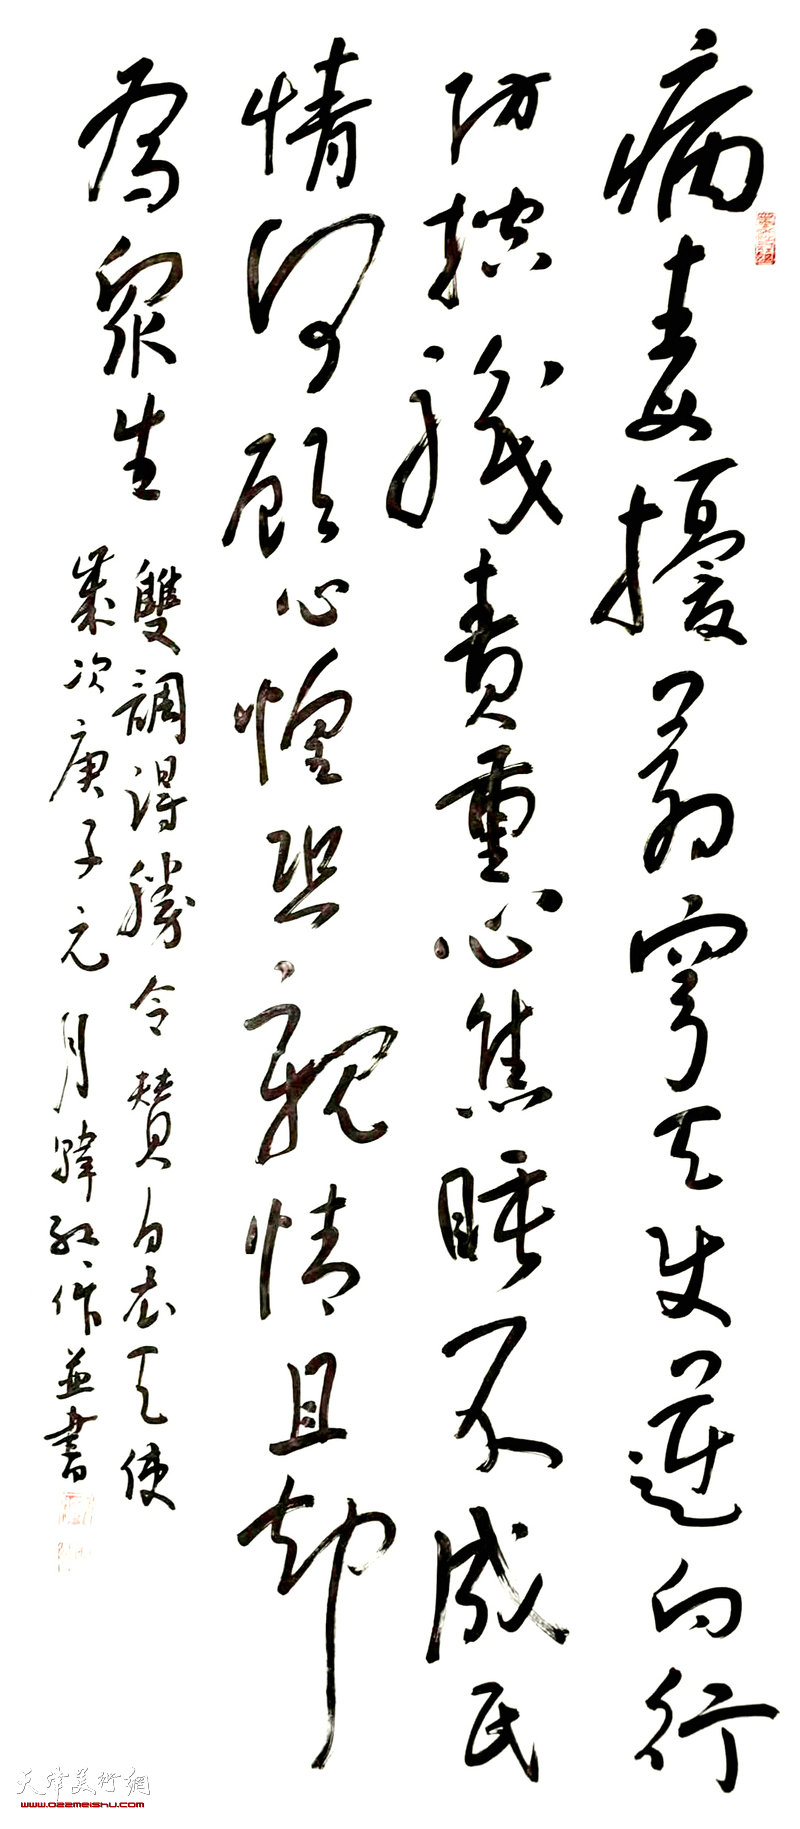 病毒擾蒼穹天使逆向行
防控職責重心焦睡不成民
情何顧心惶恐親情且却
為眾生
雙調得勝令贊白衣天使
歲次庚子元月驊虹作並書
天津美術網
www.022meishu.com